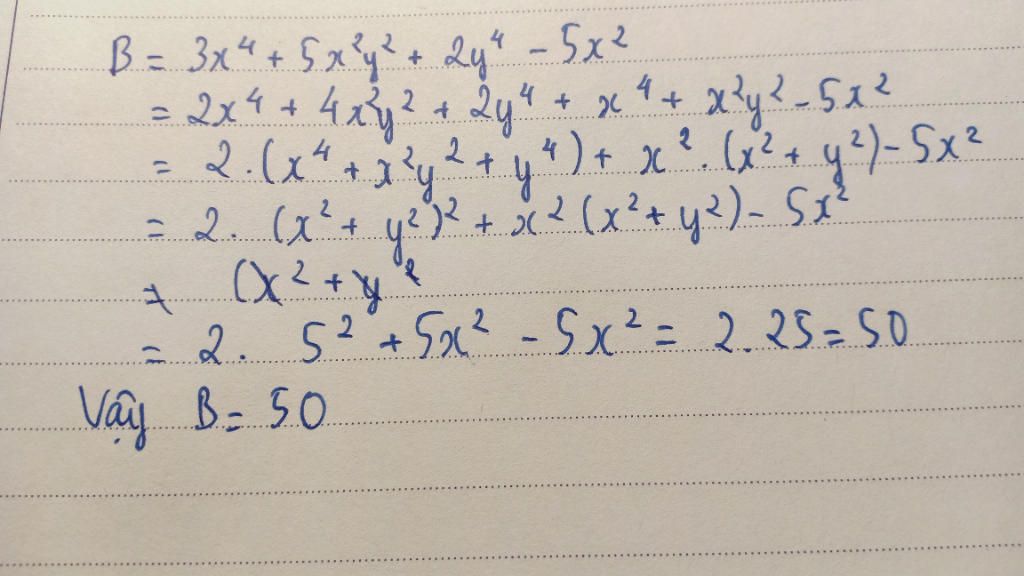 B = 3x⁴ + 5x²y² + 2y⁴ - 5x²
= 2x⁴ + 4x²y² + 2y⁴ + x⁴ + x²y² - 5x²
= 2.(x⁴ + x²y² + y⁴) + x².(x² + y²) - 5x²
= 2. (x² + y²)² + x²(x² + y²) - 5x²
= (x² + y²
= 2. 5² + 5x² - 5x² = 2.25 = 50
Vậy B = 50